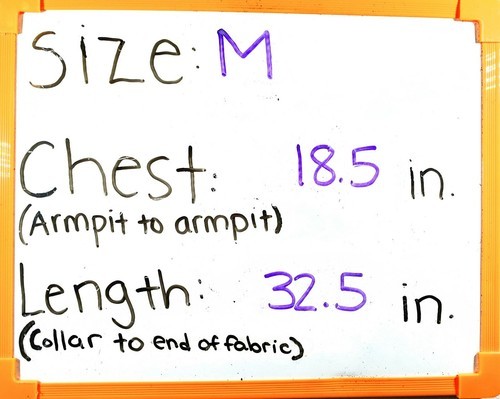 Size: M
Chest: 18.5 in.
(Armpit to armpit)
Length: 32.5 in.
(Collar to end of fabric)